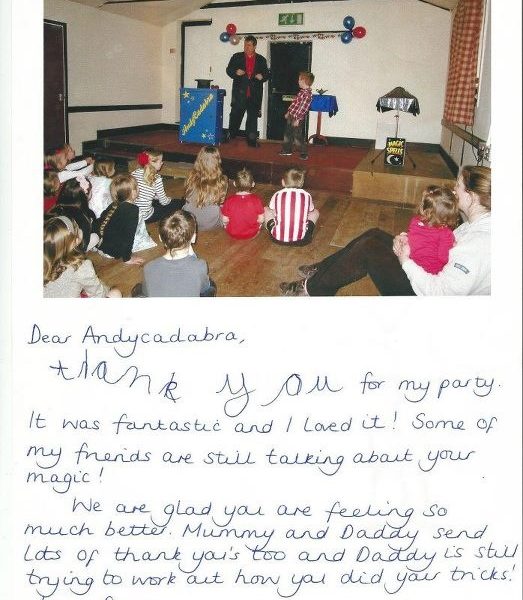 AndyCadabra
MAGIC
SPELLS
Dear Andycadabra,
thank you for my party.
It was fantastic and I loved it! Some of
my friends are still talking about your
magic!
We are glad you are feeling so
much better. Mummy and Daddy send
lots of thank you's too and Daddy is still
trying to work out how you did your tricks!